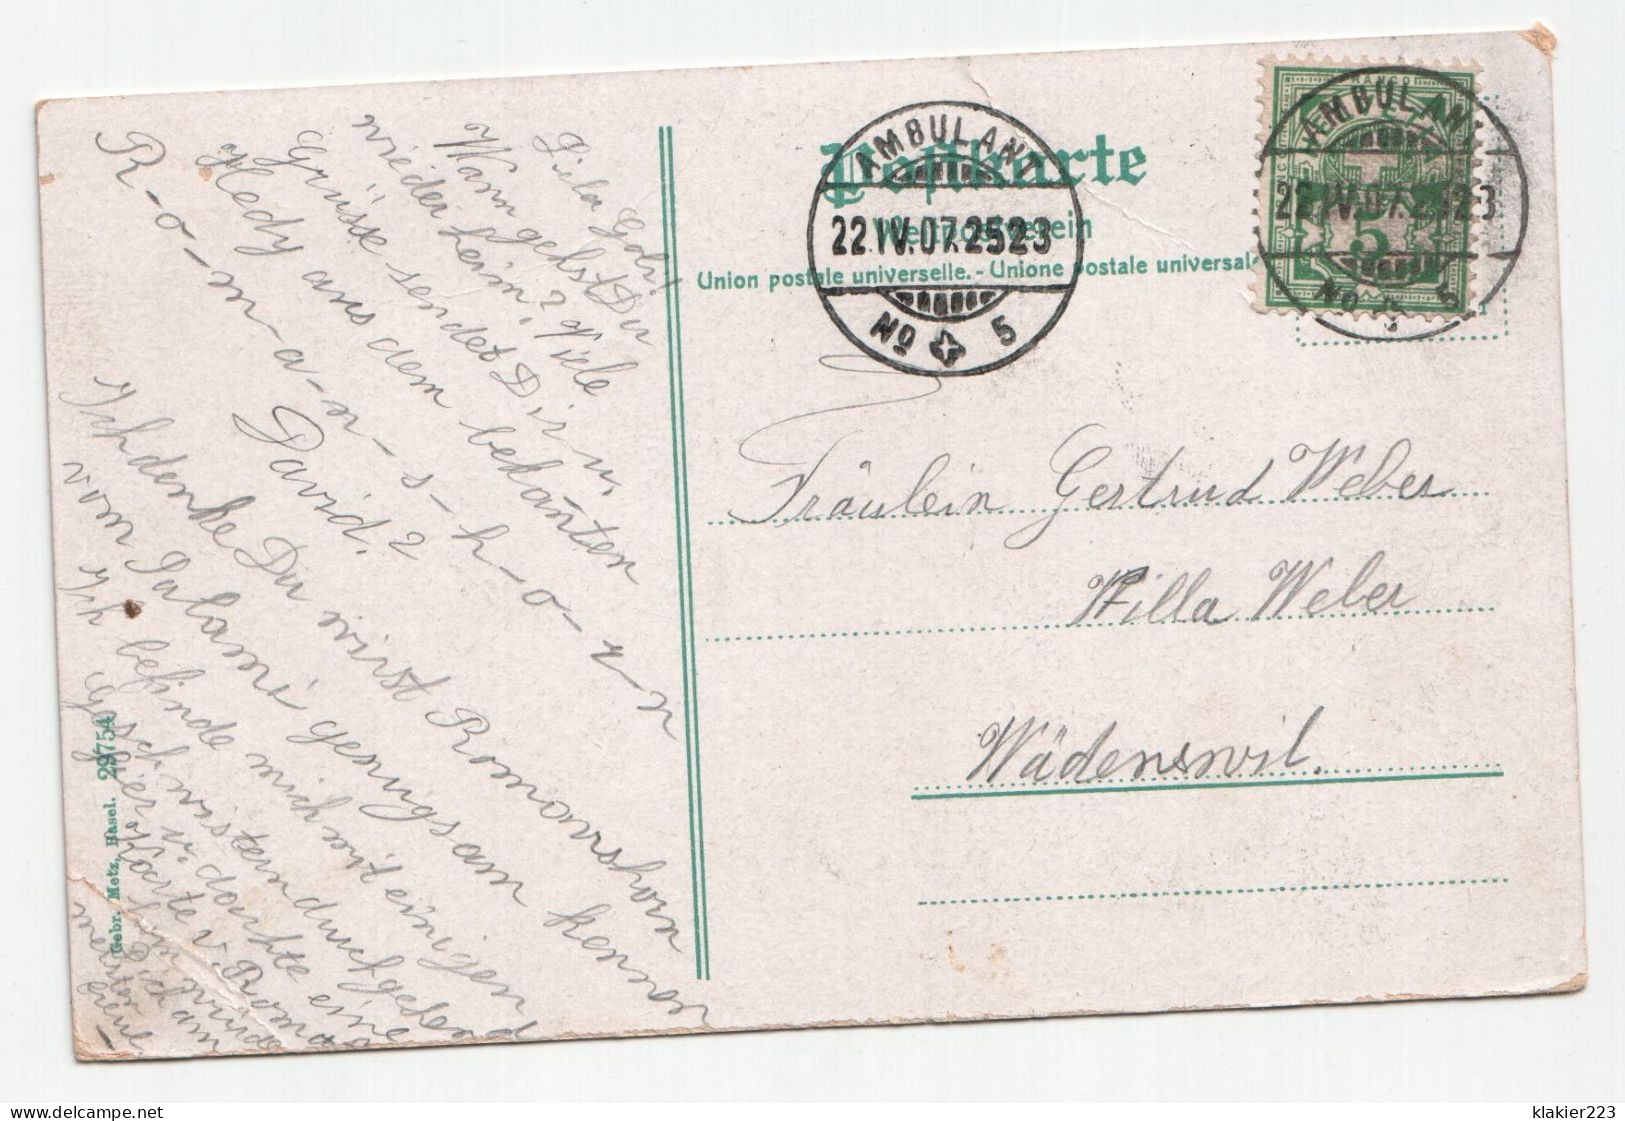 Postkarte
Weltpostverein
Union postale universelle. - Unione postale universale
AMBULANT
22.IV.07.2523
No 5
AMBULANT
22.IV.07.2523
No 5
FRANCO
5
Fräulein Gertrud Weber
Villa Weber
Wädenswil.
Wann gehst Du
wieder heim? Viele
Grüsse sendet Dir u.
Hedy aus dem bekañten
R-o-m-a-n-s-h-o-r-n
David.?
Ich denke Du wirst Romanshorn
vom Salami genugsam kennen
Ich befinde mich mit einigen
Geschwistern durchgehend
hier u. dachte eine
Karte v. Roma
Dich am
meisten
Gebr. Metz, Basel. 29754
delcampe.net
klakier223